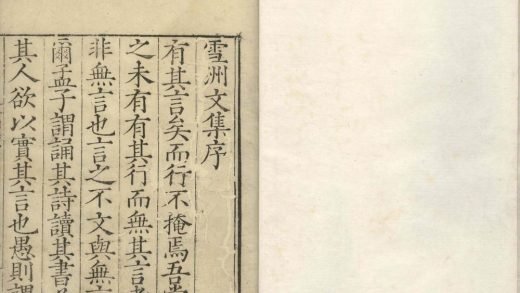 雪洲文集序
有其言矣而行不掩焉吾
之未有有其行而無其言
非無言也言之不文與無
爾孟子謂誦其詩讀其書
其人欲以實其言也愚則